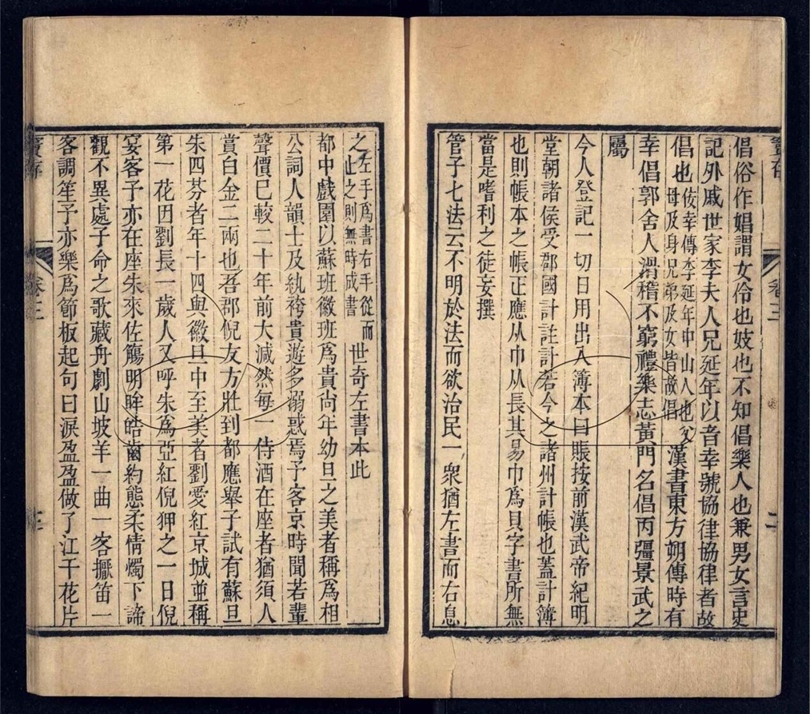 倡俗作娼謂女伶也妓也不知倡樂人也兼男女言史
記外戚世家李夫人兄延年以音幸號協律協律者故
倡也佞幸傳李延年中山人也父
母及身兄弟及女皆故倡漢書東方朔傳時有
幸倡郭舍人滑稽不窮禮樂志黃門名倡丙彊景武之
屬
今人登記一切日用出入簿本曰賬按前漢武帝紀明
堂朝諸侯受郡國計註計若今之諸州計帳也蓋計簿
也則帳本之帳正應从巾从長其易巾爲貝字書所無
當是嗜利之徒妄撰
管子七法云不明於法而欲治民一衆猶左書而右息
之左手爲書右手從而
止之則無時成書世奇左書本此
都中戲園以蘇班徽班爲貴尚年幼旦之美者稱爲相
公詞人韻士及紈袴貴遊多溺惑焉予客京時聞若輩
聲價已較二十年前大減然每一侍酒在座者猶須人
賞白金二兩也吾郡倪友方壯到都應舉子試有蘇旦
朱四芬者年十四與徽旦中至美者劉愛紅京城並稱
第一花因劉長一歲人又呼朱爲亞紅倪狎之一日倪
宴客予亦在座朱來佐觴明眸皓齒約態柔情燭下諦
觀不異處子命之歌藏舟劇山坡羊一曲一客擫笛一
客調笙予亦樂爲節板起句曰淚盈盈做了江干花片
卷三
二
卷三
三